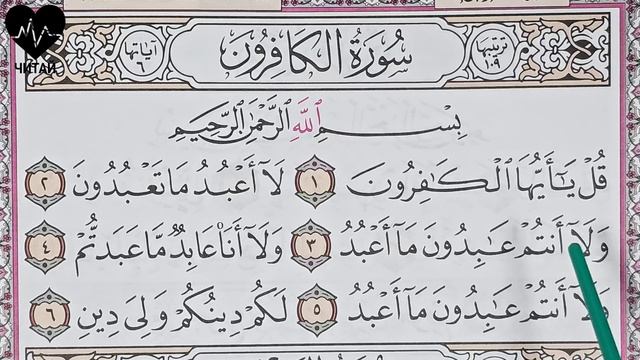 ЧИТАЙ
ترتيبها ١٠٩
سُورَةُ الكَافِرُونَ
آياتها ٦
بِسْمِ ٱللَّهِ ٱلرَّحْمَٰنِ ٱلرَّحِيمِ
قُلْ يَٰٓأَيُّهَا ٱلْكَٰفِرُونَ ١ لَآ أَعْبُدُ مَا تَعْبُدُونَ ٢
وَلَآ أَنتُمْ عَٰبِدُونَ مَآ أَعْبُدُ ٣ وَلَآ أَنَا۠ عَابِدٌ مَّا عَبَدتُّمْ ٤
وَلَآ أَنتُمْ عَٰبِدُونَ مَآ أَعْبُدُ ٥ لَكُمْ دِينُكُمْ وَلِىَ دِينِ ٦